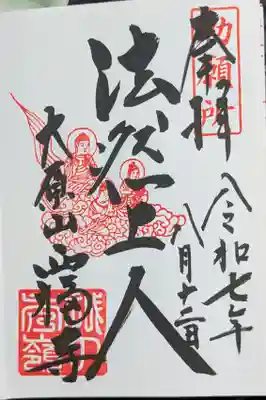 勅願所
奉拝
令和七年
八月十二日
法然上人
大原山